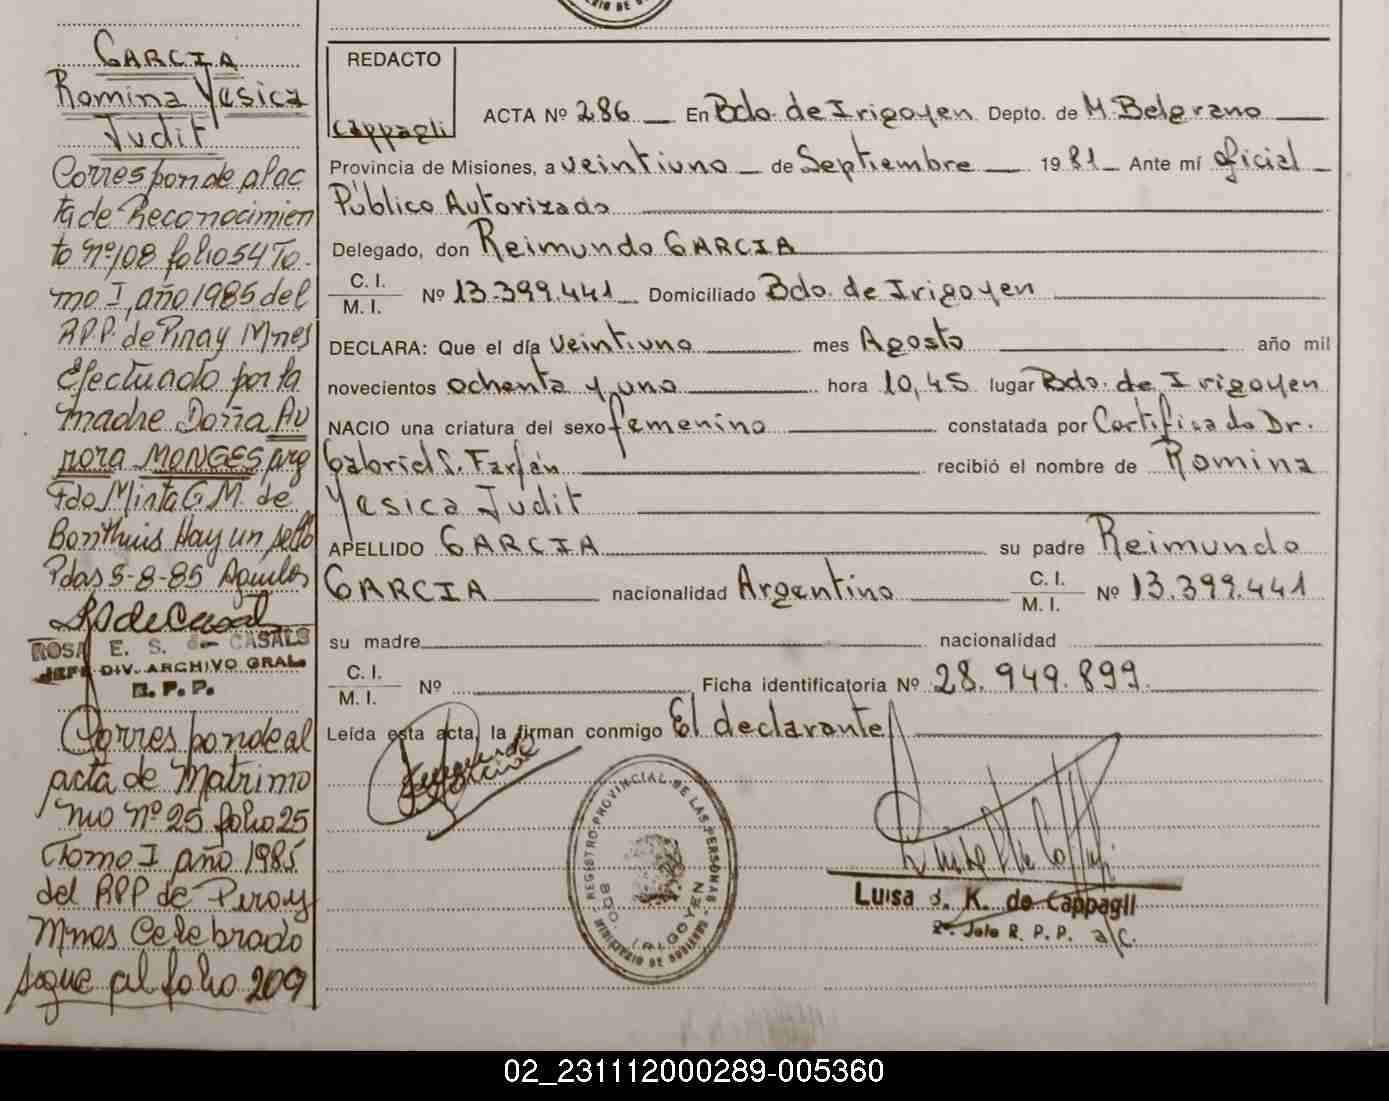 GARCIA
Romina Yesica
Judit
Corresponde al ac
ta de Reconocimien
to Nº 108 folio 54 To-
mo I, año 1985 del
RPP. de Piray Mnes
Efectuado por la
madre Doña Au
rora MONGES arg
Fdo Mirta G M. de
Bonthuis Hay un sello
Pdas 5-8-85 Aguilos
ROSA E. S. de CASALS
JEFE DIV. ARCHIVO GRAL.
R. P. P.
Corresponde al
acta de Matrimo
nio Nº 25 folio 25
Tomo I año 1985
del RPP de Piray
Mnes Celebrado
sigue al folio 209
REDACTO
Cappagli
ACTA Nº 286 En Bdo. de Irigoyen Depto. de M. Belgrano
Provincia de Misiones, a veintiuno de Septiembre 1981 Ante mí oficial
Público Autorizado
Delegado, don Reimundo GARCIA
C. I.
M. I. Nº 13.399.441 Domiciliado Bdo. de Irigoyen
DECLARA: Que el día veintiuno mes Agosto año mil
novecientos ochenta y uno hora 10,45 lugar Bdo. de Irigoyen
NACIO una criatura del sexo femenino constatada por Certificado Dr.
Gabriel S. Farfán recibió el nombre de Romina
Yesica Judit
APELLIDO GARCIA su padre Reimundo
GARCIA nacionalidad Argentino C. I. M. I. Nº 13.399.441
su madre nacionalidad
C. I.
M. I. Nº Ficha identificatoria Nº 28.949.899.
Leída esta acta, la firman conmigo El declarante
REGISTRO PROVINCIAL DE LAS PERSONAS
BDO. IRIGOYEN
MINISTERIO DE GOBIERNO
Luisa J. K. de Cappagli
2º Jefe R. P. P. a/c.
02_231112000289-005360